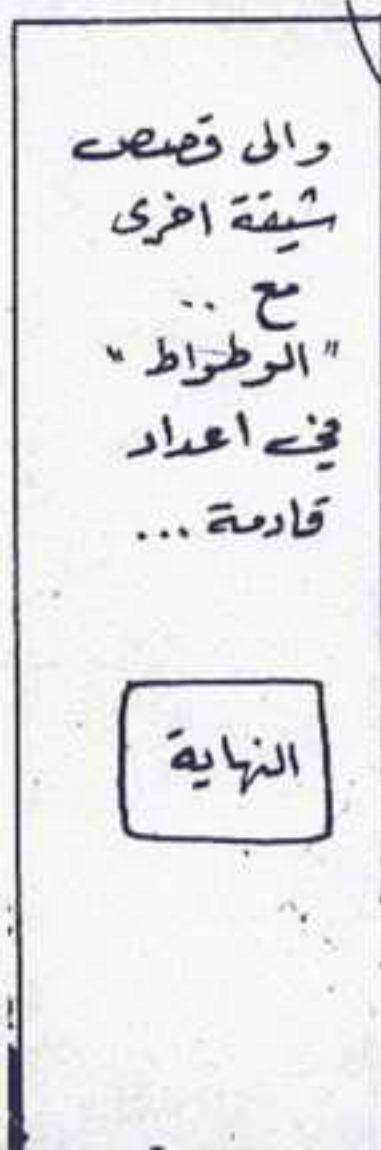 والى قصص
شيقة اخرى
مع ..
"الوطواط"
في اعداد
قادمة ...
النهاية